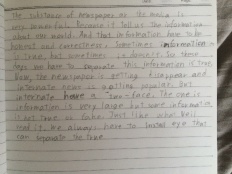 The substance of newspaper as the media is
very powerful. Because it tell us the information
about the world. And that information have to be
honest and correctness. Sometimes information
is true, but sometimes is doesn't. So these
days we have to separate this information is true.
Now, the newspaper is getting disappear and
internate news is getting popular. But
internate have a two-face. The one is
information is very large but some information
is not true is fake. Just like
read it. We always have to trusted eye that
can separate the true.